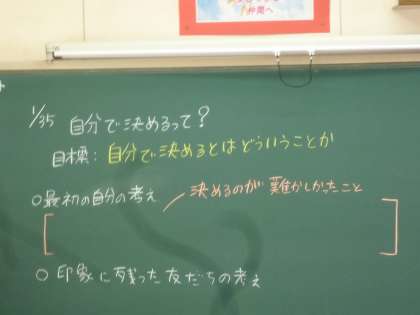 仲間へ
1/35 自分で決めるって?
目標: 自分で決めるとはどういうことか
○最初の自分の考え
決めるのが難かしかったこと
○ 印象に残った友だちの考え